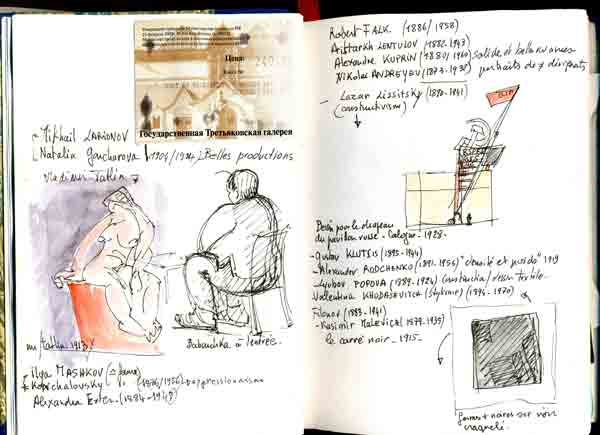 Цена:
Государственная Третьяковская галерея
Mikhail LARIONOV
Natalia Gontcharova Belles productions
Vladimir Tatlin
nu Tatlin 1913
Babouchka à l'entrée.
- ilya MASHKOV
* Kontchalovsky (1876/1956)
Alexandra Exter - (1884-1949)
Robert FALK. (1886/1958)
Aristarkh LENTULOV (1882-1943)
Alexandre KUPRIN (1880/1960) solide et belles œuvres
Nikolai ANDREYEV (1873-1932) portraits de
- Lazar Lissitsky (1890-1941)
(constructivism)
Dessin pour le drapeau
du pavillon russe - Cologne - 1928 -
- Gustav KLUTSIS (1895-1944)
- Alexander RODCHENKO (1891-1956) "densité et poids" 1919
- Lyubov POPOVA (1889-1924) (constructiv) dessin textile -
Valentina KHODASEVITCH (styliste) (1894-1970)
Filonov (1883-1941)
- Kasimir Malevich (1879-1935)
le carré noir - 1915 -
noires sur noir
craquelé.